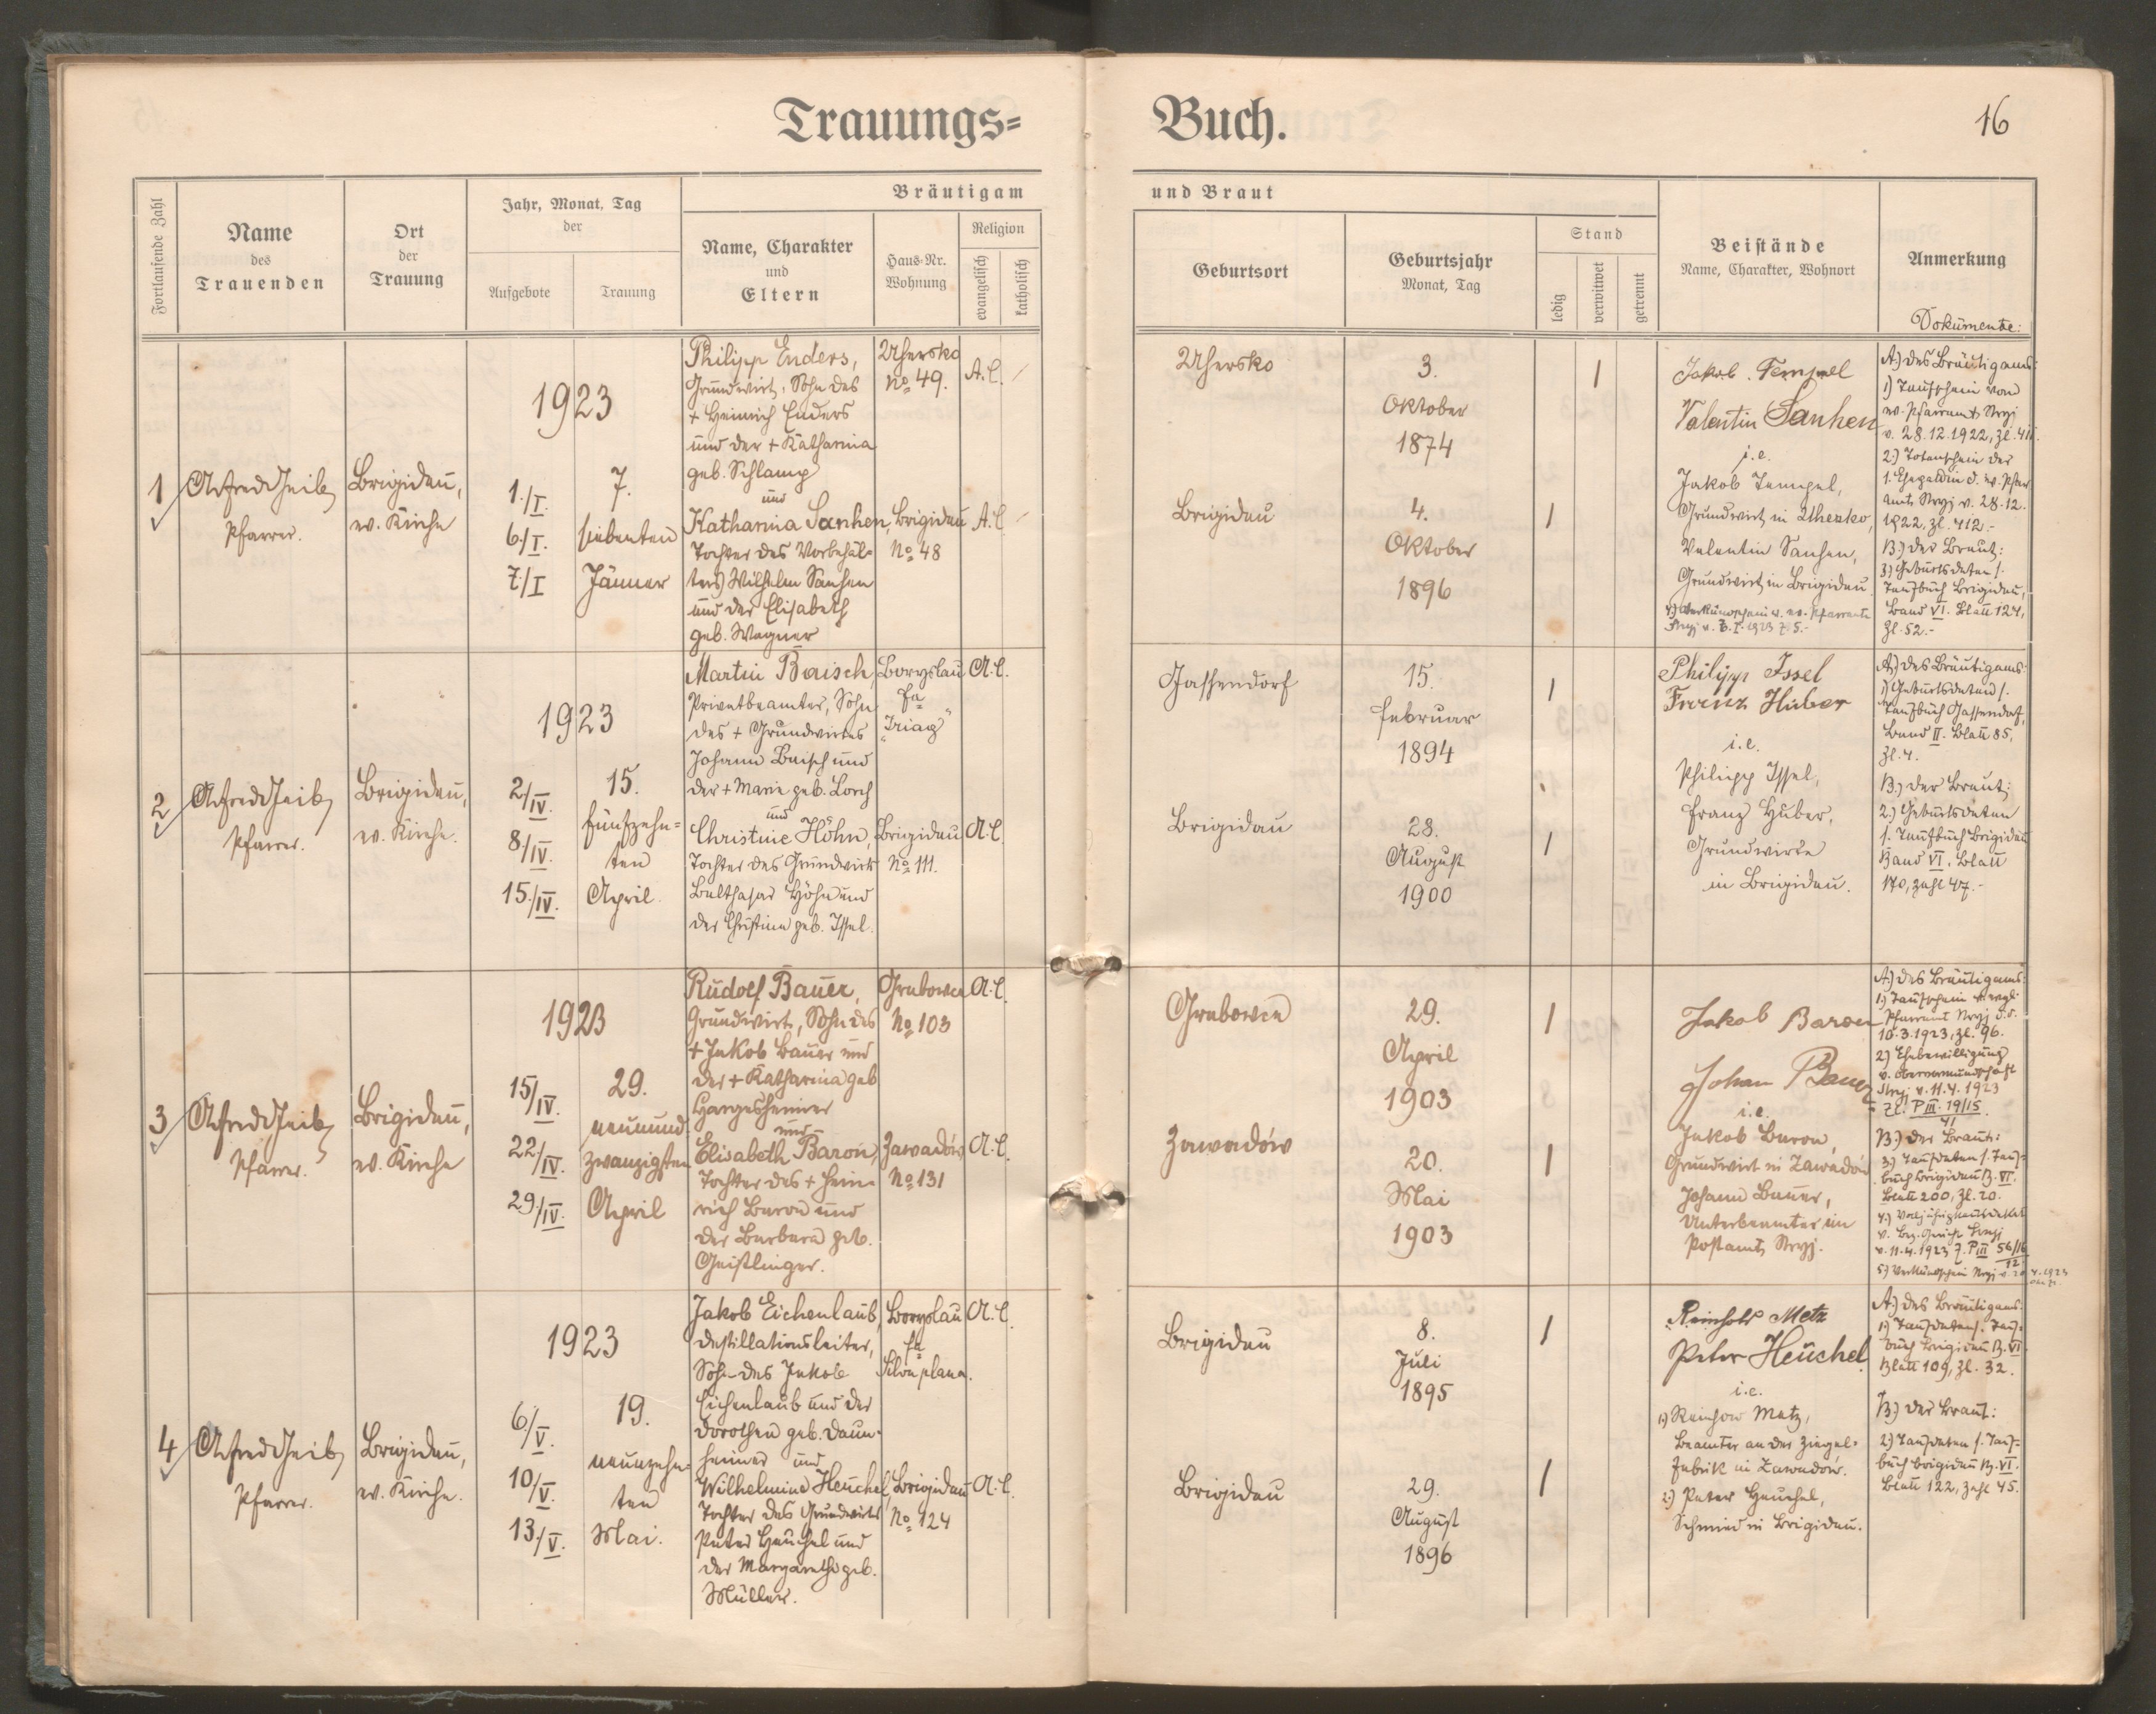 Trauungs=
Buch.
16
Fortlaufende Zahl
Name
des
Trauenden
Ort
der
Trauung
Jahr, Monat, Tag
der
Aufgebote
Trauung
Bräutigam
Name, Charakter
und
Eltern
Haus-Nr.
Wohnung
Religion
evangelisch
katholisch
und Braut
Geburtsort
Geburtsjahr
Monat, Tag
Stand
ledig
verwitwet
getrennt
Beistände
Name, Charakter, Wohnort
Anmerkung
Dokumente:
1
Pfarrer.
Brigidau,
ev. Kirche
1923
1./I.
6./I.
7./I
7.
siebenten
Jänner
Philipp Enders,
Grundwirt, Sohn des
+ Heinrich Enders
und der + Katharina
geb. Schlamp
und
Katharina Sanhen,
Tochter des Vorbehäl-
ters Wilhelm Sanhen
und der Elisabeth
geb. Wagner
Uhersko
No 49.
A.C.
Brigidau
No 48
A.C.
Uhersko
3.
Oktober
1874
1
Brigidau
4.
Oktober
1896
1
Jakob Tempel
Valentin Sanhen
i.e.
Jakob Tempel,
Grundwirt in Uhersko,
Valentin Sanhen,
Grundwirt in Brigidau.
4) Verkündschein v. ev. Pfarramte
Stryj v. 7.I.1923 Z. 5.-
A.) des Bräutigams:
1) Taufschein vom
ev. Pfarramt Stryj
v. 28.12.1922, Zl. 411.
2.) Totenschein der
1. Ehegattin d. ev. Pfarr
amts Stryj v. 28.12.
1922, Zl. 412.-
B.) der Braut:
3.) Geburtsdaten s.
Taufbuch Brigidau,
Band VI. Blatt 124,
Zl. 52.-
2
Pfarrer.
Brigidau,
ev. Kirche.
1923
2/IV.
8/IV.
15./IV.
15.
fünfzehn=
ten
April.
Martin Baisch,
Privatbeamter, Sohn
des + Grundwirtes
Johann Baisch und
der + Marie geb. Lorch
und
Christine Höhn,
Tochter des Grundwirts
Balthasar Höhn und
der Christina geb. Issel.
Boryslau
Fa
"Triag"
A.C.
Brigidau
No 111.
A.C.
Gassendorf
15.
Februar
1894
1
Brigidau
28.
August
1900
1
Philipp Issel
Franz Huber
i.e.
Philipp Issel,
Franz Huber,
Grundwirte
in Brigidau.
A.) des Bräutigams:
1) Geburtsdaten s.
Taufbuch Gassendorf,
Band II. Blatt 85,
Zl. 4.
B.) der Braut:
2.) Geburtsdaten
s. Taufbuch Brigidau
Band VI, Blatt
170, Zahl 47.-
3
Pfarrer.
Brigidau,
ev. Kirche
1923
15/IV.
22/IV.
29./IV.
29.
neunund
zwanzigsten
April
Rudolf Bauer,
Grundwirt, Sohn des
+ Jakob Bauer und
der + Katharina geb
Hargesheimer
und
Elisabeth Baron,
Tochter des + Hein-
rich Baron und
der Barbara geb.
Geistlinger.
Grabowce
No 103
A.C.
Zawadów
No 131
A.C.
Grabowce
29.
April
1903
1
Zawadów
20.
Mai
1903
1
Jakob Baron
Johan Bauer
i.e.
Jakob Baron,
Grundwirt in Zawadów
Johann Bauer,
Unterbeamter im
Postamt Stryj.
A.) des Bräutigams:
1.) Taufschein v. evgl.
Pfarramt Stryj d.d.
10.3.1923, Zl. 96.
2) Ehebewilligung
v. Obervormundschaft
Stryj v. 11.4.1923
Zl. P III. 19/15
41
B.) der Braut:
3.) Taufdaten s. Tauf-
buch Brigidau B. VI.
Blatt 200, Zl. 20.
v. Bez. Gericht Stryj
v. 11.4.1923 Z. P III 56/16
12
5.) Verkündschein Stryj v. 20.
4.1923
4
Pfarrer.
Brigidau,
ev. Kirche.
1923
6/V.
10/V.
13./V.
19.
neunzehn=
ten
Mai.
Jakob Eichenlaub,
Destillationsleiter,
Sohn des Jakob
Eichenlaub und der
Dorothea geb. Daun-
heimer und
Wilhelmine Heuchel,
Tochter des Grundwirts
Peter Heuchel und
der Margarethe geb.
Müller.
Boryslau
Fa
Silva plana.
A.C.
Brigidau
No 124
A.C.
Brigidau
8.
Juli
1895
1
Brigidau
29.
August
1896
1
Reinhold Metz
Peter Heuchel
i.e.
1) Reinhold Metz,
Beamter an der Ziegel-
fabrik in Zawadów.
2) Peter Heuchel,
Schmied in Brigidau.
A.) des Bräutigams:
1.) Taufdaten s. Tauf-
buch Brigidau B. VI
Blatt 109, Zl. 32.
B.) der Braut:
2) Taufdaten s. Tauf-
buch Brigidau B. VI.
Blatt 122, Zahl 45.